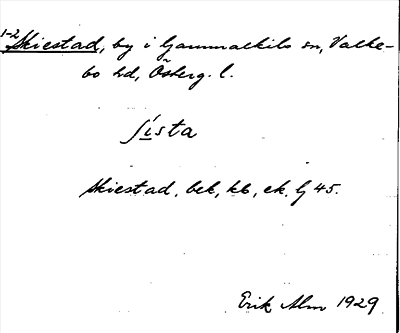 1-2 Skiestad, by i Gammalkils sn, Valke-
bo hd, Österg. l.
ſísta
Skiestad, bek, kb, ek. Lj 45.
Erik Alm 1929